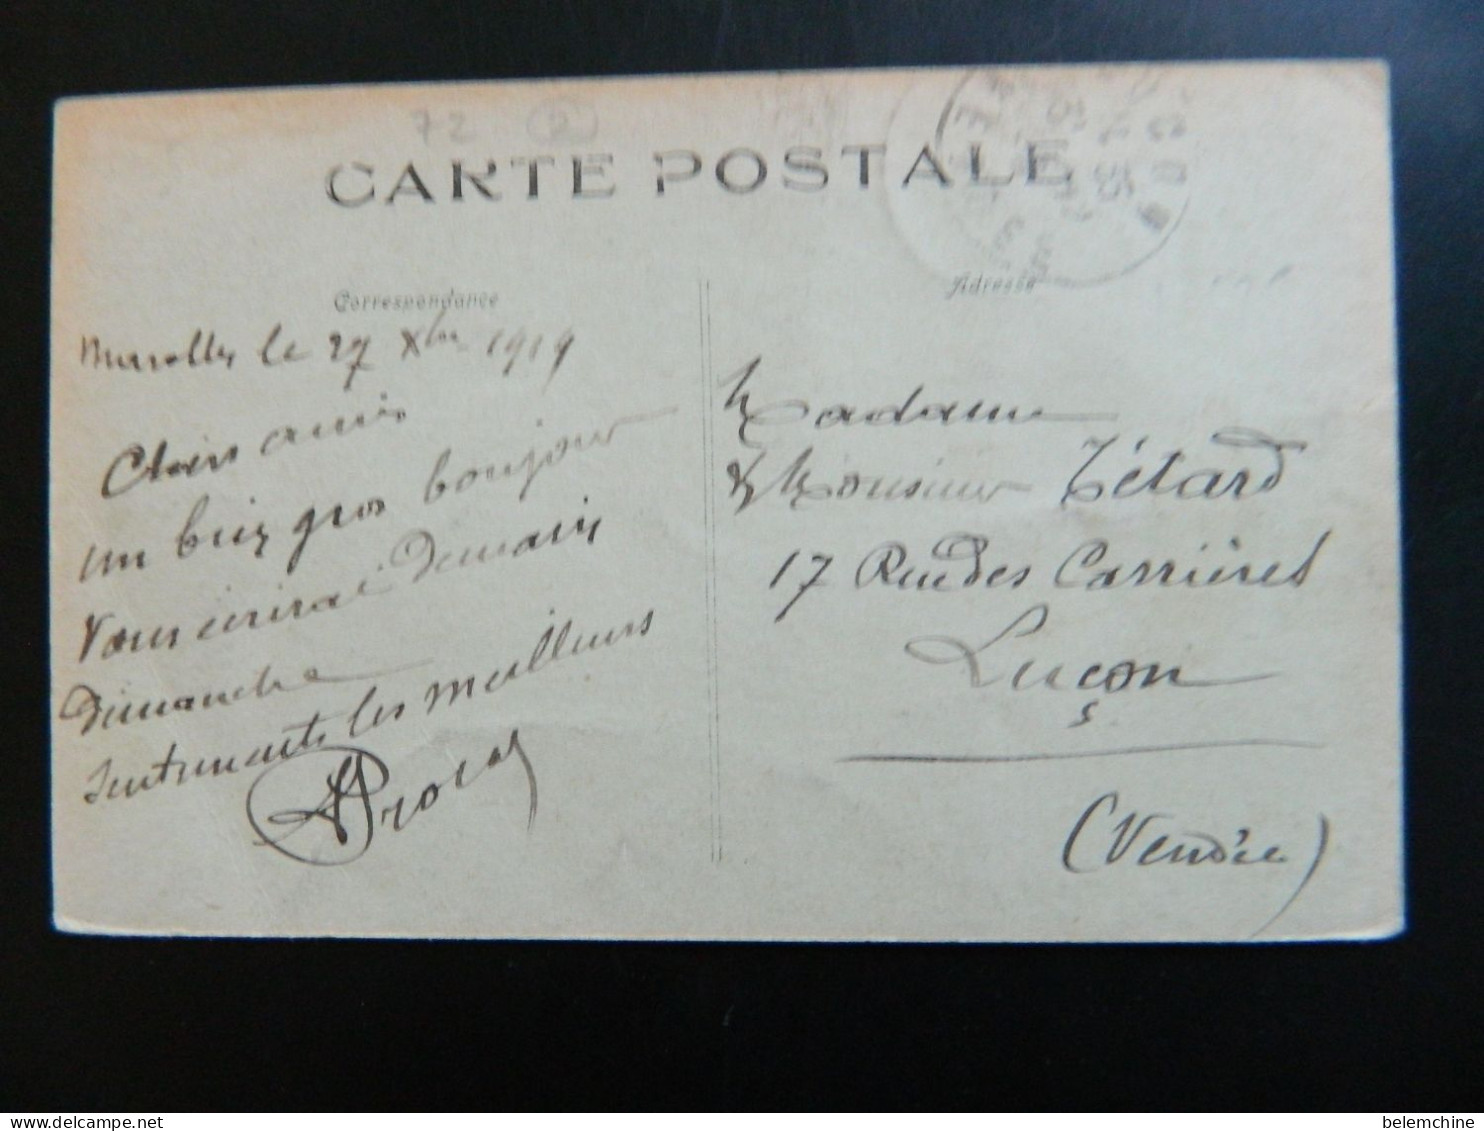 72
CARTE POSTALE
Correspondance
Adresse
le 27 Xbre 1919
Chers amis
un bien gros bonjour
Vous écrirai Demain
Dimanche
Sentiments les meilleurs
Madame
& Monsieur Tétard
17 Rue des Carrières
Luçon
(Vendée)
belemchine